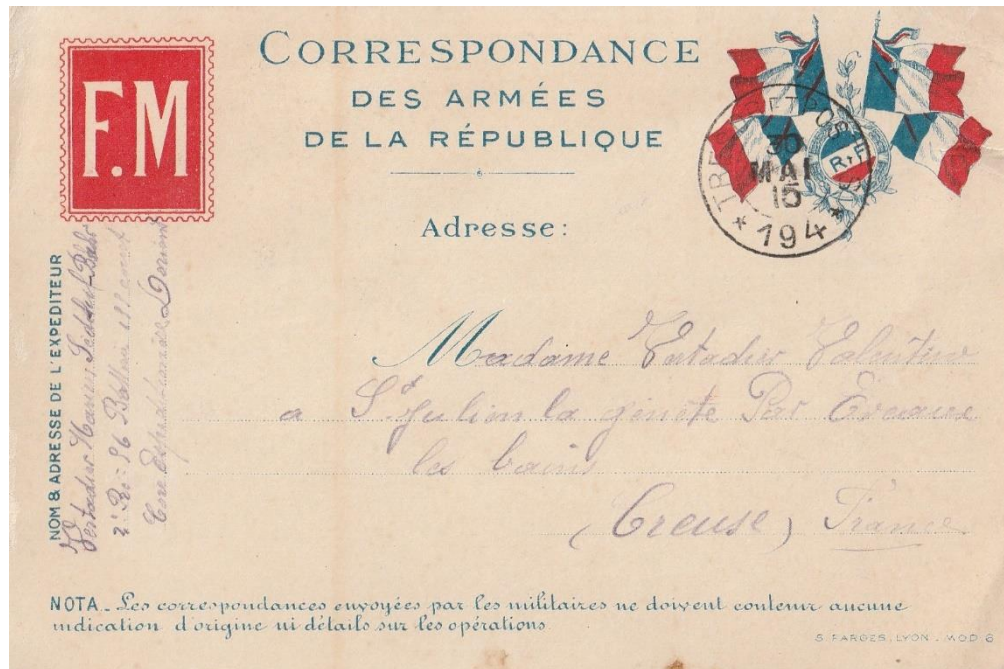 F.M
CORRESPONDANCE
DES ARMÉES
DE LA RÉPUBLIQUE
R.F
TRESOR ET POSTES
30
MAI
15
* 194 *
Adresse:
NOM & ADRESSE DE L'EXPEDITEUR
2e
Corps Expéditionnaire d'Orient
Madame Valentine
a St Julien la genete Par Evaux
les bains
(Creuse) France
NOTA_ Les correspondances envoyées par les militaires ne doivent contenir aucune
indication d'origine ni détails sur les opérations.
S. FARGES, LYON. MOD 6